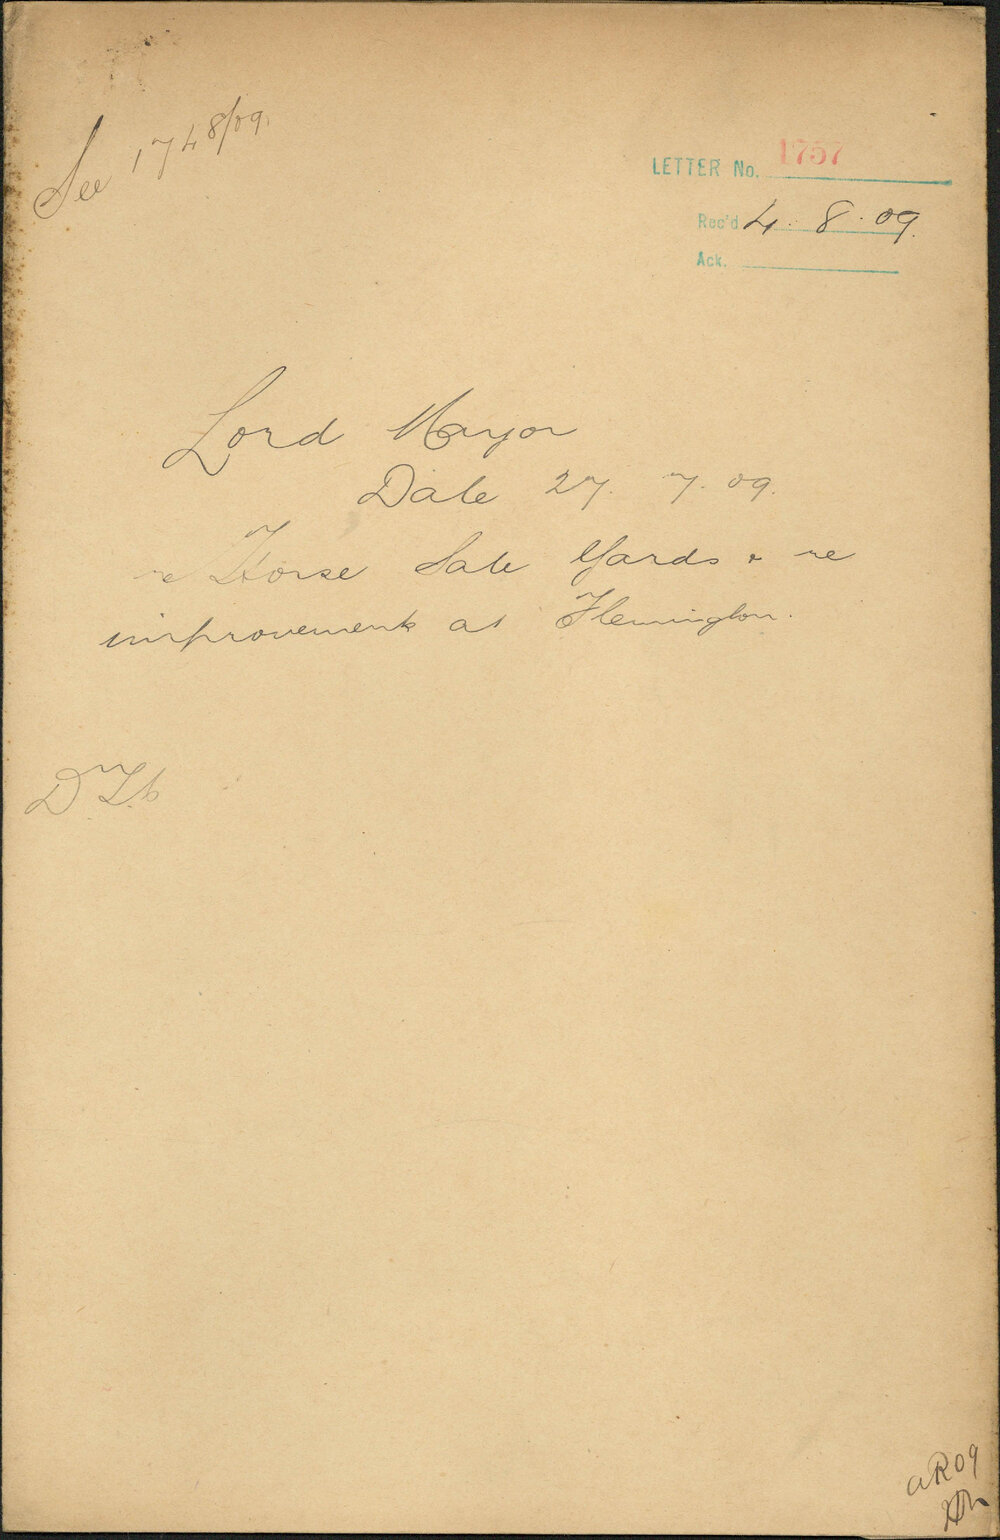 See 1748/09.
LETTER No. 1757
Rec'd 4. 8. 09.
Ack.
Lord Mayor
Date 27. 7. 09.
re Horse Sale Yards & re
improvements at Flemington.
aR09